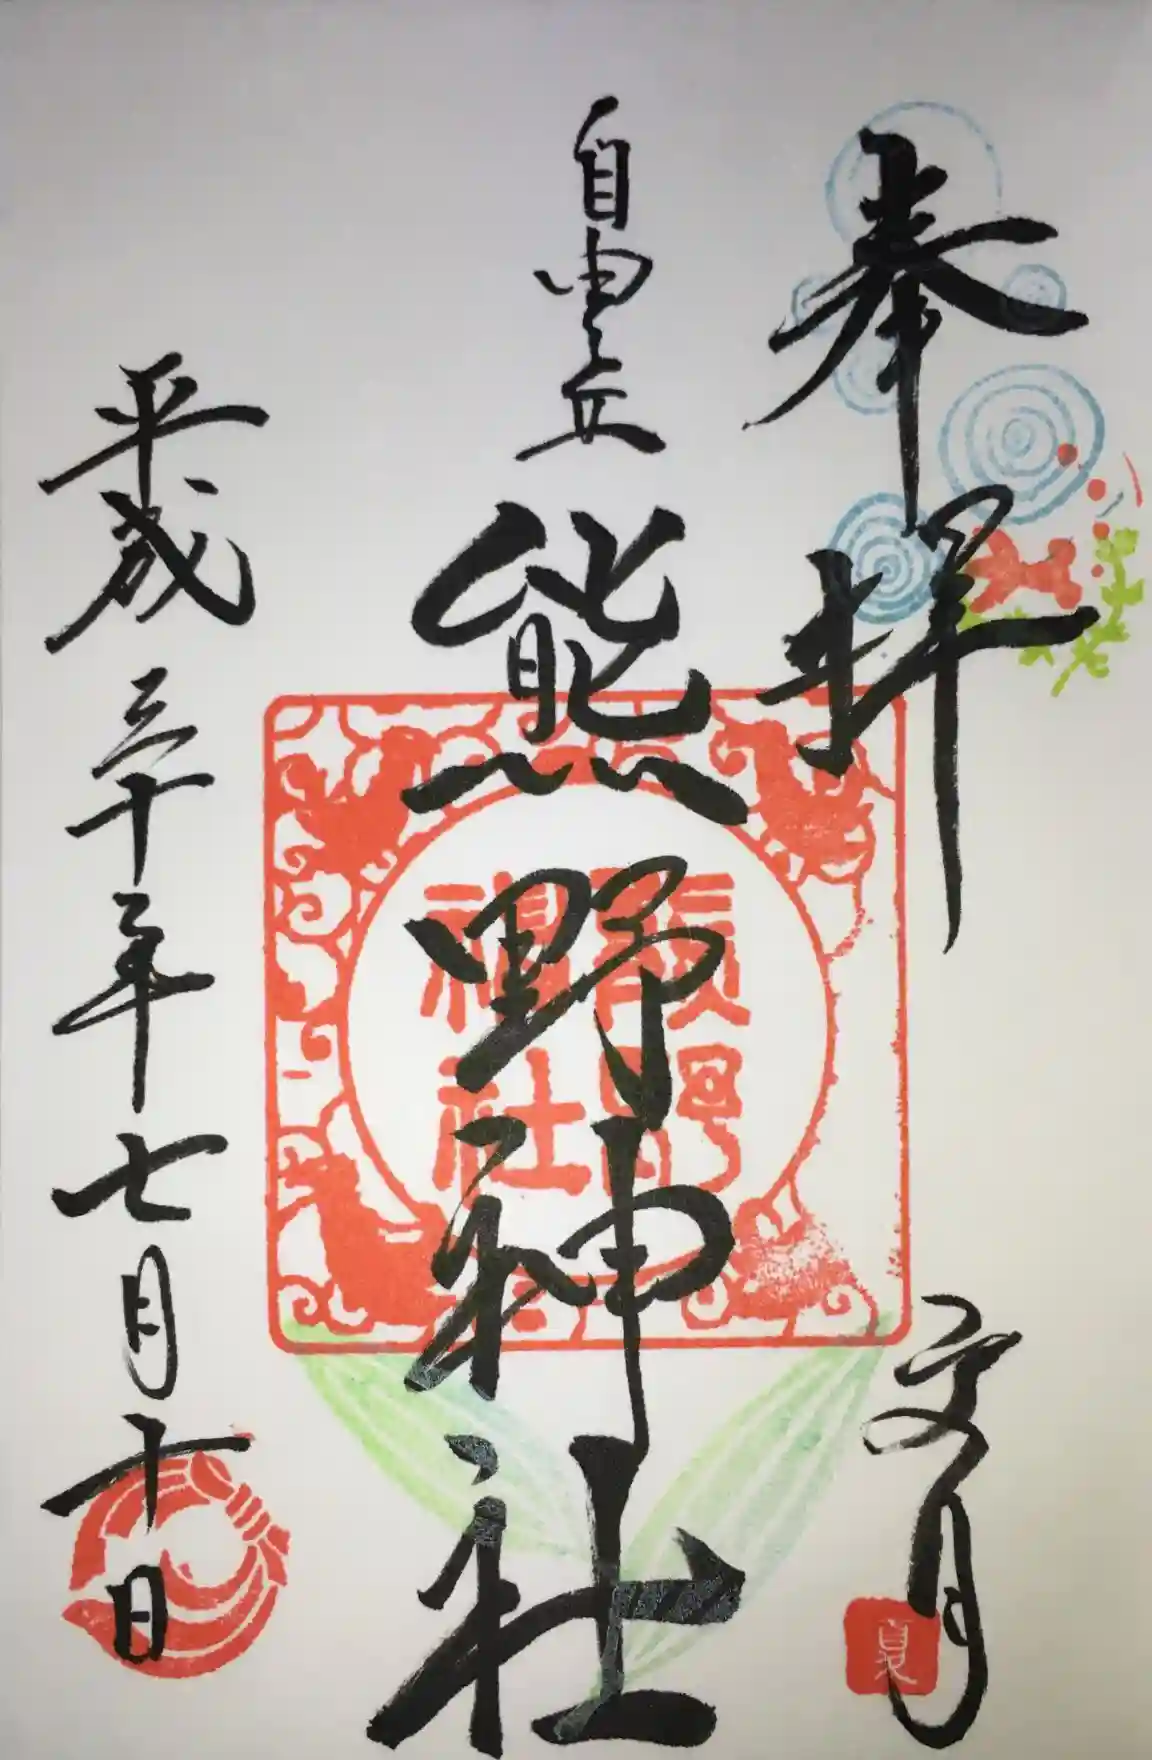 奉拝
文月
夏
自由が丘
熊野神社
平成三十年七月十日